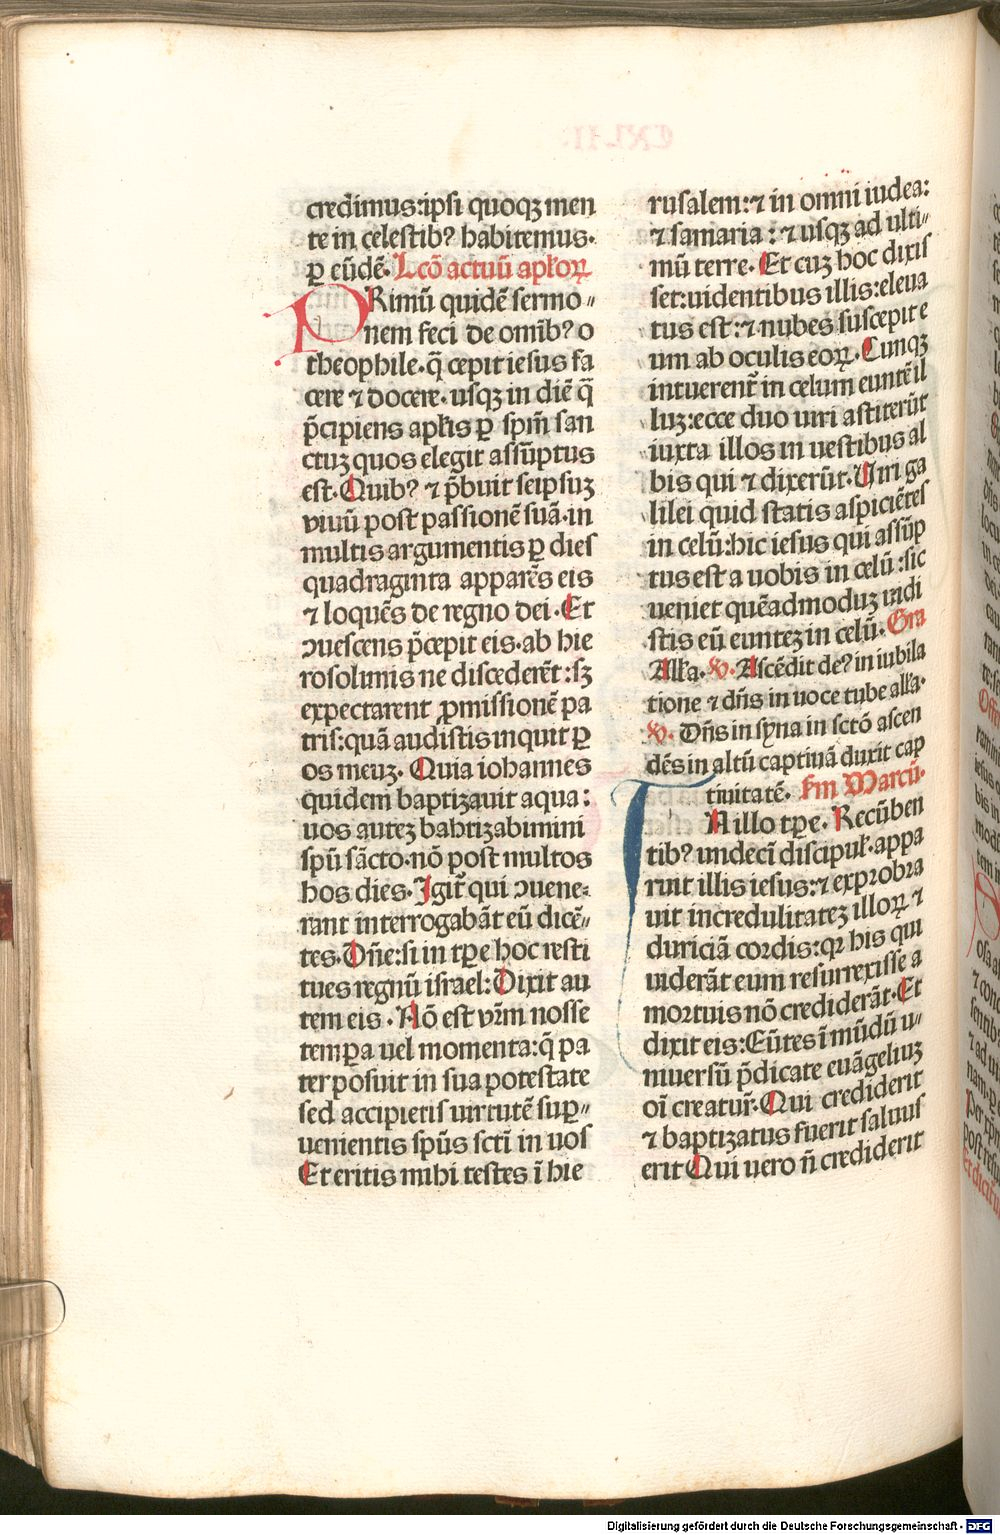 credimus:ipsi quoqꝫ men
te in celestibꝰ habitemus·
ꝑ eūdē· Lcō actuū apłoꝝ
PRimū quidē sermo〃
nem feci de omībꝰ o
theophile·q̄ cepit iesus fa
cere ⁊ docere· usqꝫ in diē q̄
p̄cipiens apłis ꝑ sp̄m san
ctuꝫ quos elegit assūptus
est·Quibꝰ ⁊ p̄buit seipsuꝫ
vivū post passionē suā·in
multis argumentis ꝑ dies
quadraginta apparēs eis
⁊ loquēs de regno dei·Et
ꝯuescens p̄cepit eis·ab hie
rosolimis ne discederēt:sꝫ
expectarent ꝓmissionē pa
tris:quā audistis inquit ꝑ
os meuꝫ· Quia iohannes
quidem baptizauit aqua:
uos auteꝫ babtizabimini
spū sācto·nō post multos
hos dies·Igit᷑ qui ꝯuene〃
rant interrogabāt eū dicē〃
tes·Dn̄e:si in tꝑe hoc resti
tues regnū israel: Dixit au
tem eis·Nō est vr̄m nosse
tempꝑa uel momenta:q̄ pa
ter posuit in sua potestate
sed accipietis uirtutē suꝑ〃
uenientis spūs sctī in uos
Et eritis mihi testes ī hie
rusalem:⁊ in omni iudea:
⁊ samaria:⁊ usqꝫ ad ulti〃
mū terre·Et cuꝫ hoc dixis
set:uidentibus illis:eleua
tus est:⁊ nubes suscepit e
um ab oculis eoꝝ·Cunqꝫ
intuerent᷑ in celum euntē il
luꝫ:ecce duo uiri astiterūt
iuxta illos in uestibus al
bis qui ⁊ dixerūt·Uiri ga
lilei quid statis aspiciētes
in celū:hic iesus qui assūp
tus est a uobis in celū:sic
ueniet quēadmoduꝫ uidi
stis eū eunteꝫ in celū·Gra
Alła·℣·Ascēdit deꝰ in iubila
tione ⁊ dn̄s in uoce tube alła·
℣·Dn̄s in syna in sctō ascen
dēs in altū captiuā duxit cap
tiuitatē· Sm Marcū·
IN illo tꝑe·Recūben
tibꝰ undecī discipuł·appa
ruit illis iesus:⁊ exprobra
uit increduliteteꝫ illoꝝ ⁊
duriciā cordis:qꝛ his qui
uiderāt eum resurrexisse a
mortuis nō crediderāt·Et
dixit eis:Eūtes ī mūdū u〃
niuersū p̄dicate euāgeliuꝫ
oī creatur᷑·Qui crediderit
⁊ baptizatus fuerit saluus
erit Qui uero n̄ crediderit
Digitalisierung gefördert durch die Deutsche Forschungsgemeinschaft · DFG